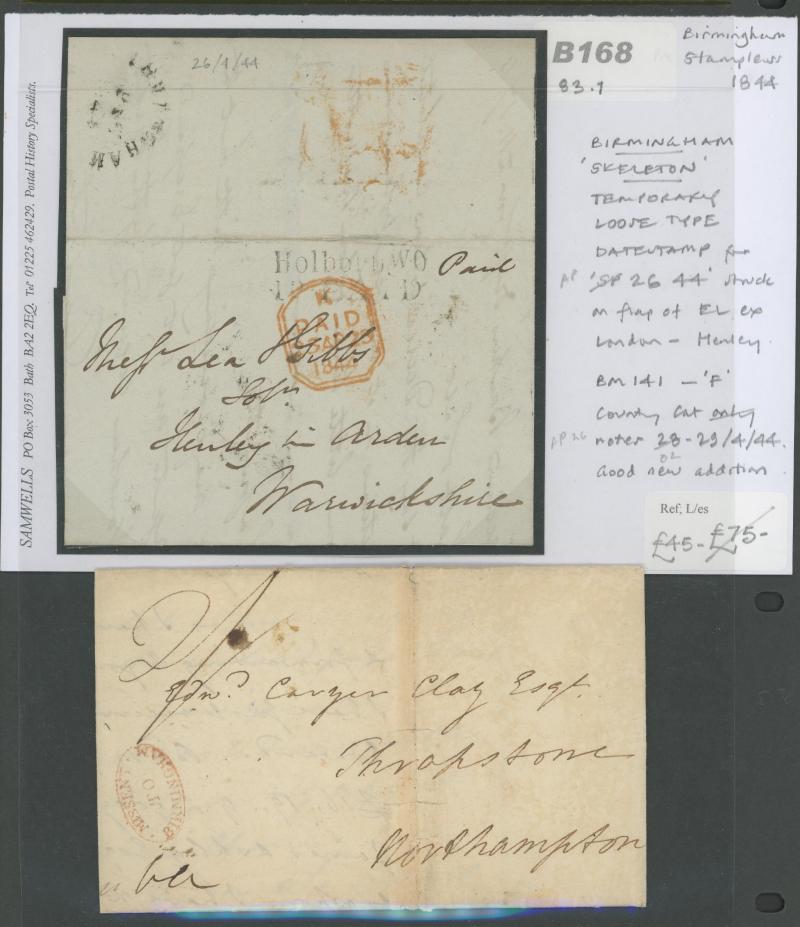 SAMWELLS PO Box 3053 Bath BA2 2EQ. Tel 01225 462429. Postal History Specialists.
26/4/44
BIRMINGHAM
Holborn, W.O
Paid
K
PAID
1844
Messrs Lea & Gibbs
Solrs
Henley in Arden
Warwickshire
B168
83.1
Birmingham
1844
BIRMINGHAM
'SKELETON'
TEMPORARY
LOOSE TYPE
DATESTAMP for
AP
'SP 26 44' struck
on flap of EL ex
London - Henley
BM 141 - 'F'
County Cat only
AP 26
notes 28-29/4/44.
or
Good new addition
Ref; L/es
£45- £75-
Edwd. Caryer Clay Esqr.
Thrapstone
Northampton
BIRMINGHAM